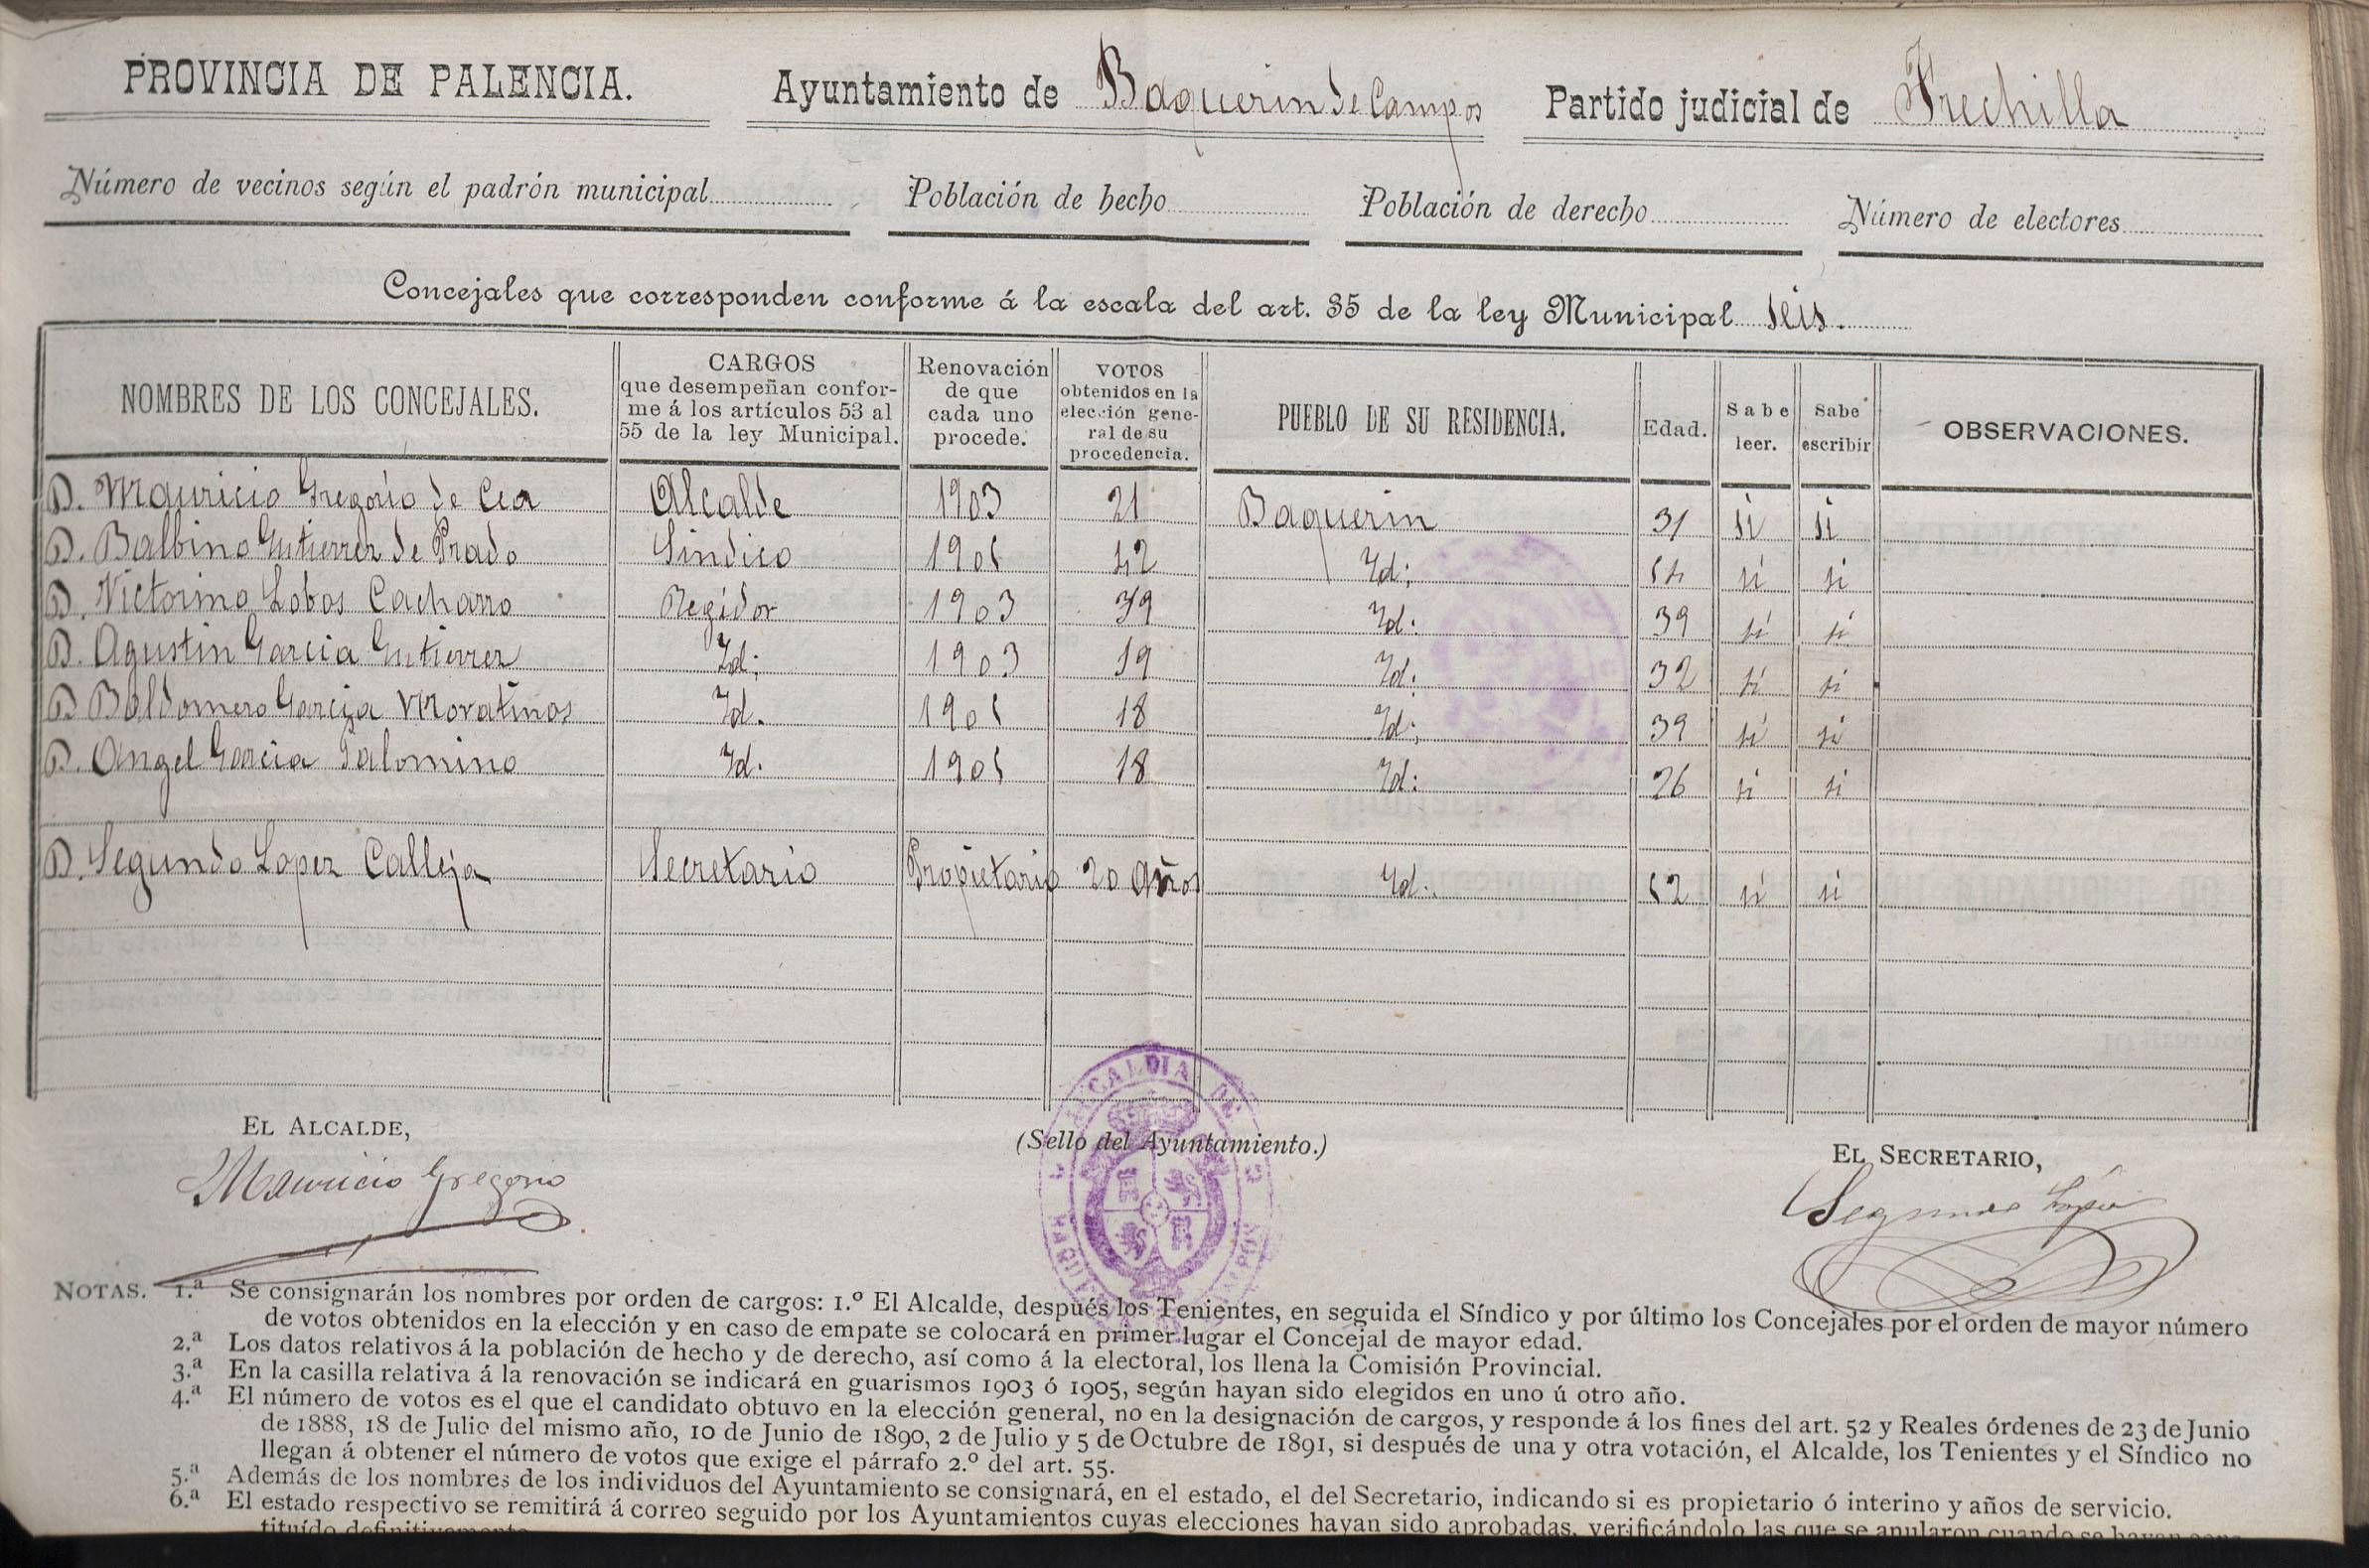 PROVINCIA DE PALENCIA. Ayuntamiento de Baquerin de Campos Partido judicial de Frechilla
Número de vecinos según el padrón municipal Población de hecho Población de derecho Número de electores
Concejales que corresponden conforme á la escala del art. 35 de la ley Municipal seis.
NOMBRES DE LOS CONCEJALES. CARGOS que desempeñan confor- me á los artículos 53 al 55 de la ley Municipal. Renovación de que cada uno procede. VOTOS obtenidos en la elección gene- ral de su procedencia. PUEBLO DE SU RESIDENCIA. Edad. Sabe leer. Sabe escribir OBSERVACIONES.
D. Mauricio Gregorio de Cea Alcalde 1903 21 Baquerin 31 si si
D. Balbino Gutierrez de Prado Sindico 1905 42 Id. 54 si si
D. Victorino Lobos Cacharro Regidor 1903 39 Id. 39 si si
D. Agustin Garcia Gutierrez Id. 1903 19 Id. 32 si si
D. Baldomero Garcia Moratinos Id. 1905 18 Id. 39 si si
D. Angel Garcia Palomino Id. 1905 18 Id. 26 si si
D. Segundo Lopez Calleja Secretario Propietario 20 años Id. 52 si si
EL ALCALDE, (Sello del Ayuntamiento.) EL SECRETARIO,
Mauricio Gregorio Segundo López
ALCALDIA DE
NOTAS. 1.ª Se consignarán los nombres por orden de cargos: 1.º El Alcalde, después los Tenientes, en seguida el Síndico y por último los Concejales por el orden de mayor número
de votos obtenidos en la elección y en caso de empate se colocará en primer lugar el Concejal de mayor edad.
2.ª Los datos relativos á la población de hecho y de derecho, así como á la electoral, los llena la Comisión Provincial.
3.ª En la casilla relativa á la renovación se indicará en guarismos 1903 ó 1905, según hayan sido elegidos en uno ú otro año.
4.ª El número de votos es el que el candidato obtuvo en la elección general, no en la designación de cargos, y responde á los fines del art. 52 y Reales órdenes de 23 de Junio
de 1888, 18 de Julio del mismo año, 10 de Junio de 1890, 2 de Julio y 5 de Octubre de 1891, si después de una y otra votación, el Alcalde, los Tenientes y el Síndico no
llegan á obtener el número de votos que exige el párrafo 2.º del art. 55.
5.ª Además de los nombres de los individuos del Ayuntamiento se consignará, en el estado, el del Secretario, indicando si es propietario ó interino y años de servicio.
6.ª El estado respectivo se remitirá á correo seguido por los Ayuntamientos cuyas elecciones hayan sido aprobadas, verificándolo las que se anularon cuando se hayan cons-
tituído definitivamente.